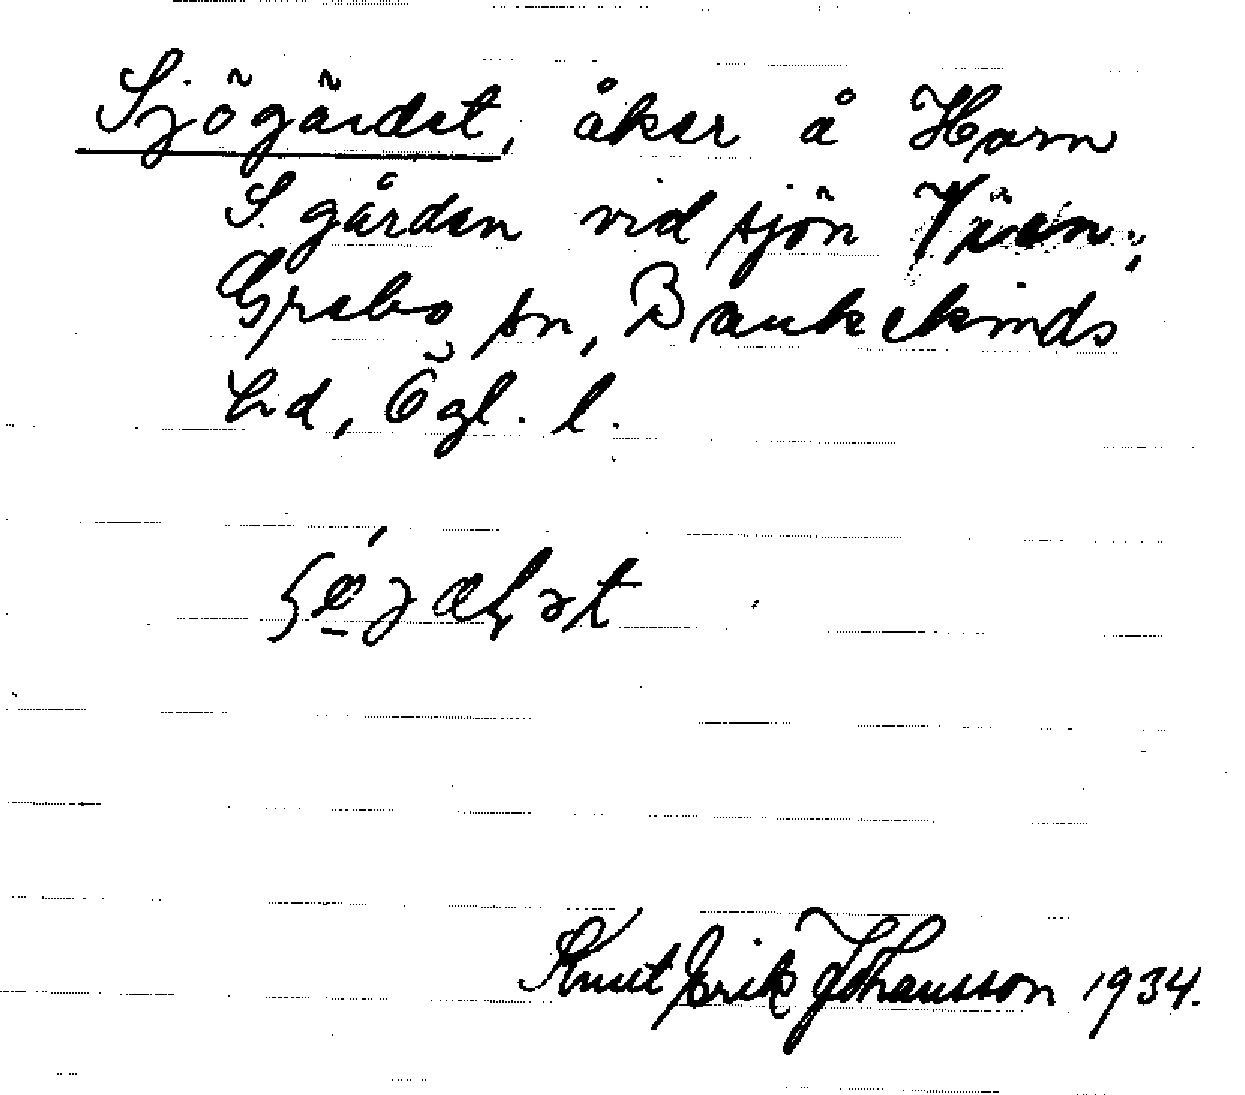 Sjögärdet, åker å Horn
S. gården vid sjön Ären,
Grebo sn, Bankekinds
hd, Ögl. l.
Knut Erik Johansson 1934.